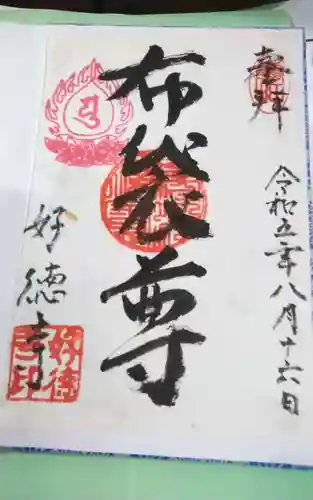 奉拝
令和五年八月十六日
布袋尊
好徳寺